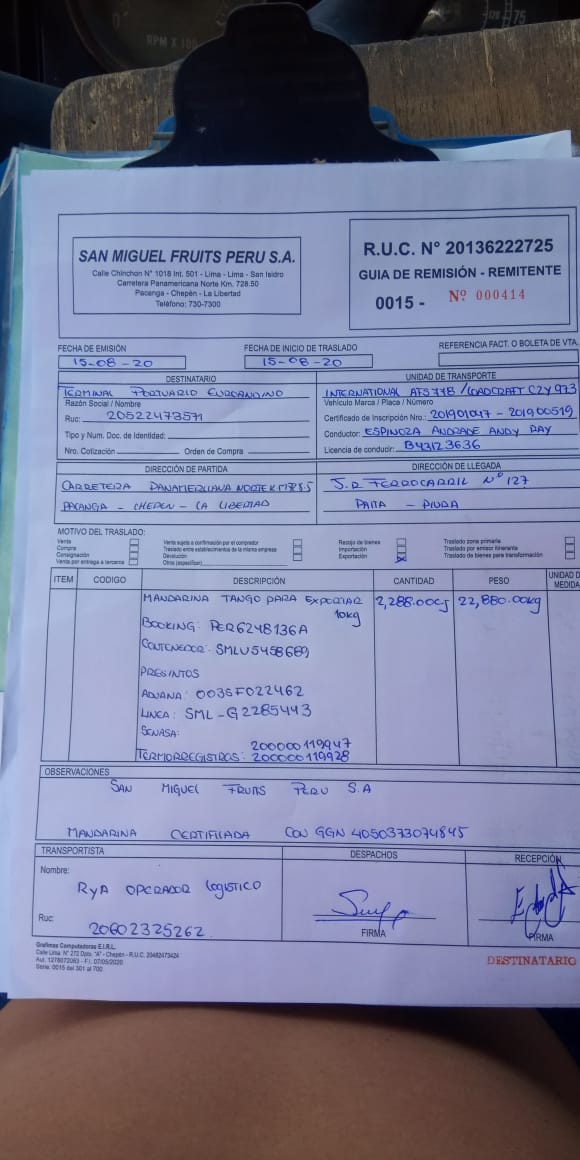 RPM X 100
75
SAN MIGUEL FRUITS PERU S.A.
Calle Chinchon N° 1018 Int. 501 - Lima - Lima - San Isidro
Carretera Panamericana Norte Km. 728.50
Pacanga - Chepén - La Libertad
Teléfono: 730-7300
R.U.C. N° 20136222725
GUIA DE REMISIÓN - REMITENTE
0015 - Nº 000414
FECHA DE EMISIÓN
15-08-20
FECHA DE INICIO DE TRASLADO
15-08-20
REFERENCIA FACT. O BOLETA DE VTA.
DESTINATARIO
TERMINAL PORTUARIO EUROANDINO
Razón Social / Nombre
Ruc: 20522473571
Tipo y Num. Doc. de Identidad:
Nro. Cotización Orden de Compra
UNIDAD DE TRANSPORTE
INTERNATIONAL AFS778/LOADCRAFT CZY973
Vehículo Marca / Placa / Número
Certificado de Inscripción Nro.: 201901047 - 201900519
Conductor: ESPINOZA ANDRADE ANDY RAY
Licencia de conducir: B43123636
DIRECCIÓN DE PARTIDA
CARRETERA PANAMERICANA NORTE KM 728.5
PACANGA - CHEPEN - LA LIBERTAD
DIRECCIÓN DE LLEGADA
J.R FERROCARRIL N° 127
PAITA - PIURA
MOTIVO DEL TRASLADO:
Venta
Compra
Consignación
Venta por entrega a terceros
Venta sujeta a confirmación por el comprador
Traslado entre establecimientos de la misma empresa
Devolución
Otros (especificar)
Recojo de bienes
Importación
Exportación
Traslado zona primaria
Traslado por emisor itinerante
Traslado de bienes para transformación
ITEM CODIGO DESCRIPCIÓN CANTIDAD PESO UNIDAD D MEDIDA
MANDARINA TANGO PARA EXPORTAR 2,288.00cj 22,880.00kg
10kg
BOOKING: PER6248136A
CONTENEDOR: SMLU5458689
PRESINTOS
ADUANA: 0035F022462
LINEA: SML-G2285443
SENASA:
200000119947
TERMORREGISTROS: 200000119928
OBSERVACIONES
SAN MIGUEL FRUITS PERU S.A
MANDARINA CERTIFICADA CON GGN 4050373074845
TRANSPORTISTA
Nombre:
RyA OPERADOR LOGISTICO
Ruc: 20602325262
DESPACHOS
FIRMA
RECEPCIÓN
FIRMA
Grafimas Computadoras E.I.R.L.
Calle Lima N° 272 Dpto. "A" - Chepén - R.U.C. 20482473424
Aut. 1278072063 - F.I. 07/05/2020
Serie: 0015 del 301 al 700
DESTINATARIO